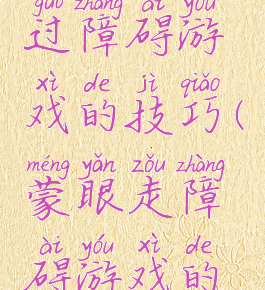 guò zhàng ài yóu
过障碍游
xì de jì qiǎo
戏的技巧(
méng yǎn zǒu zhàng
蒙眼走障
ài yóu xì de
碍游戏的